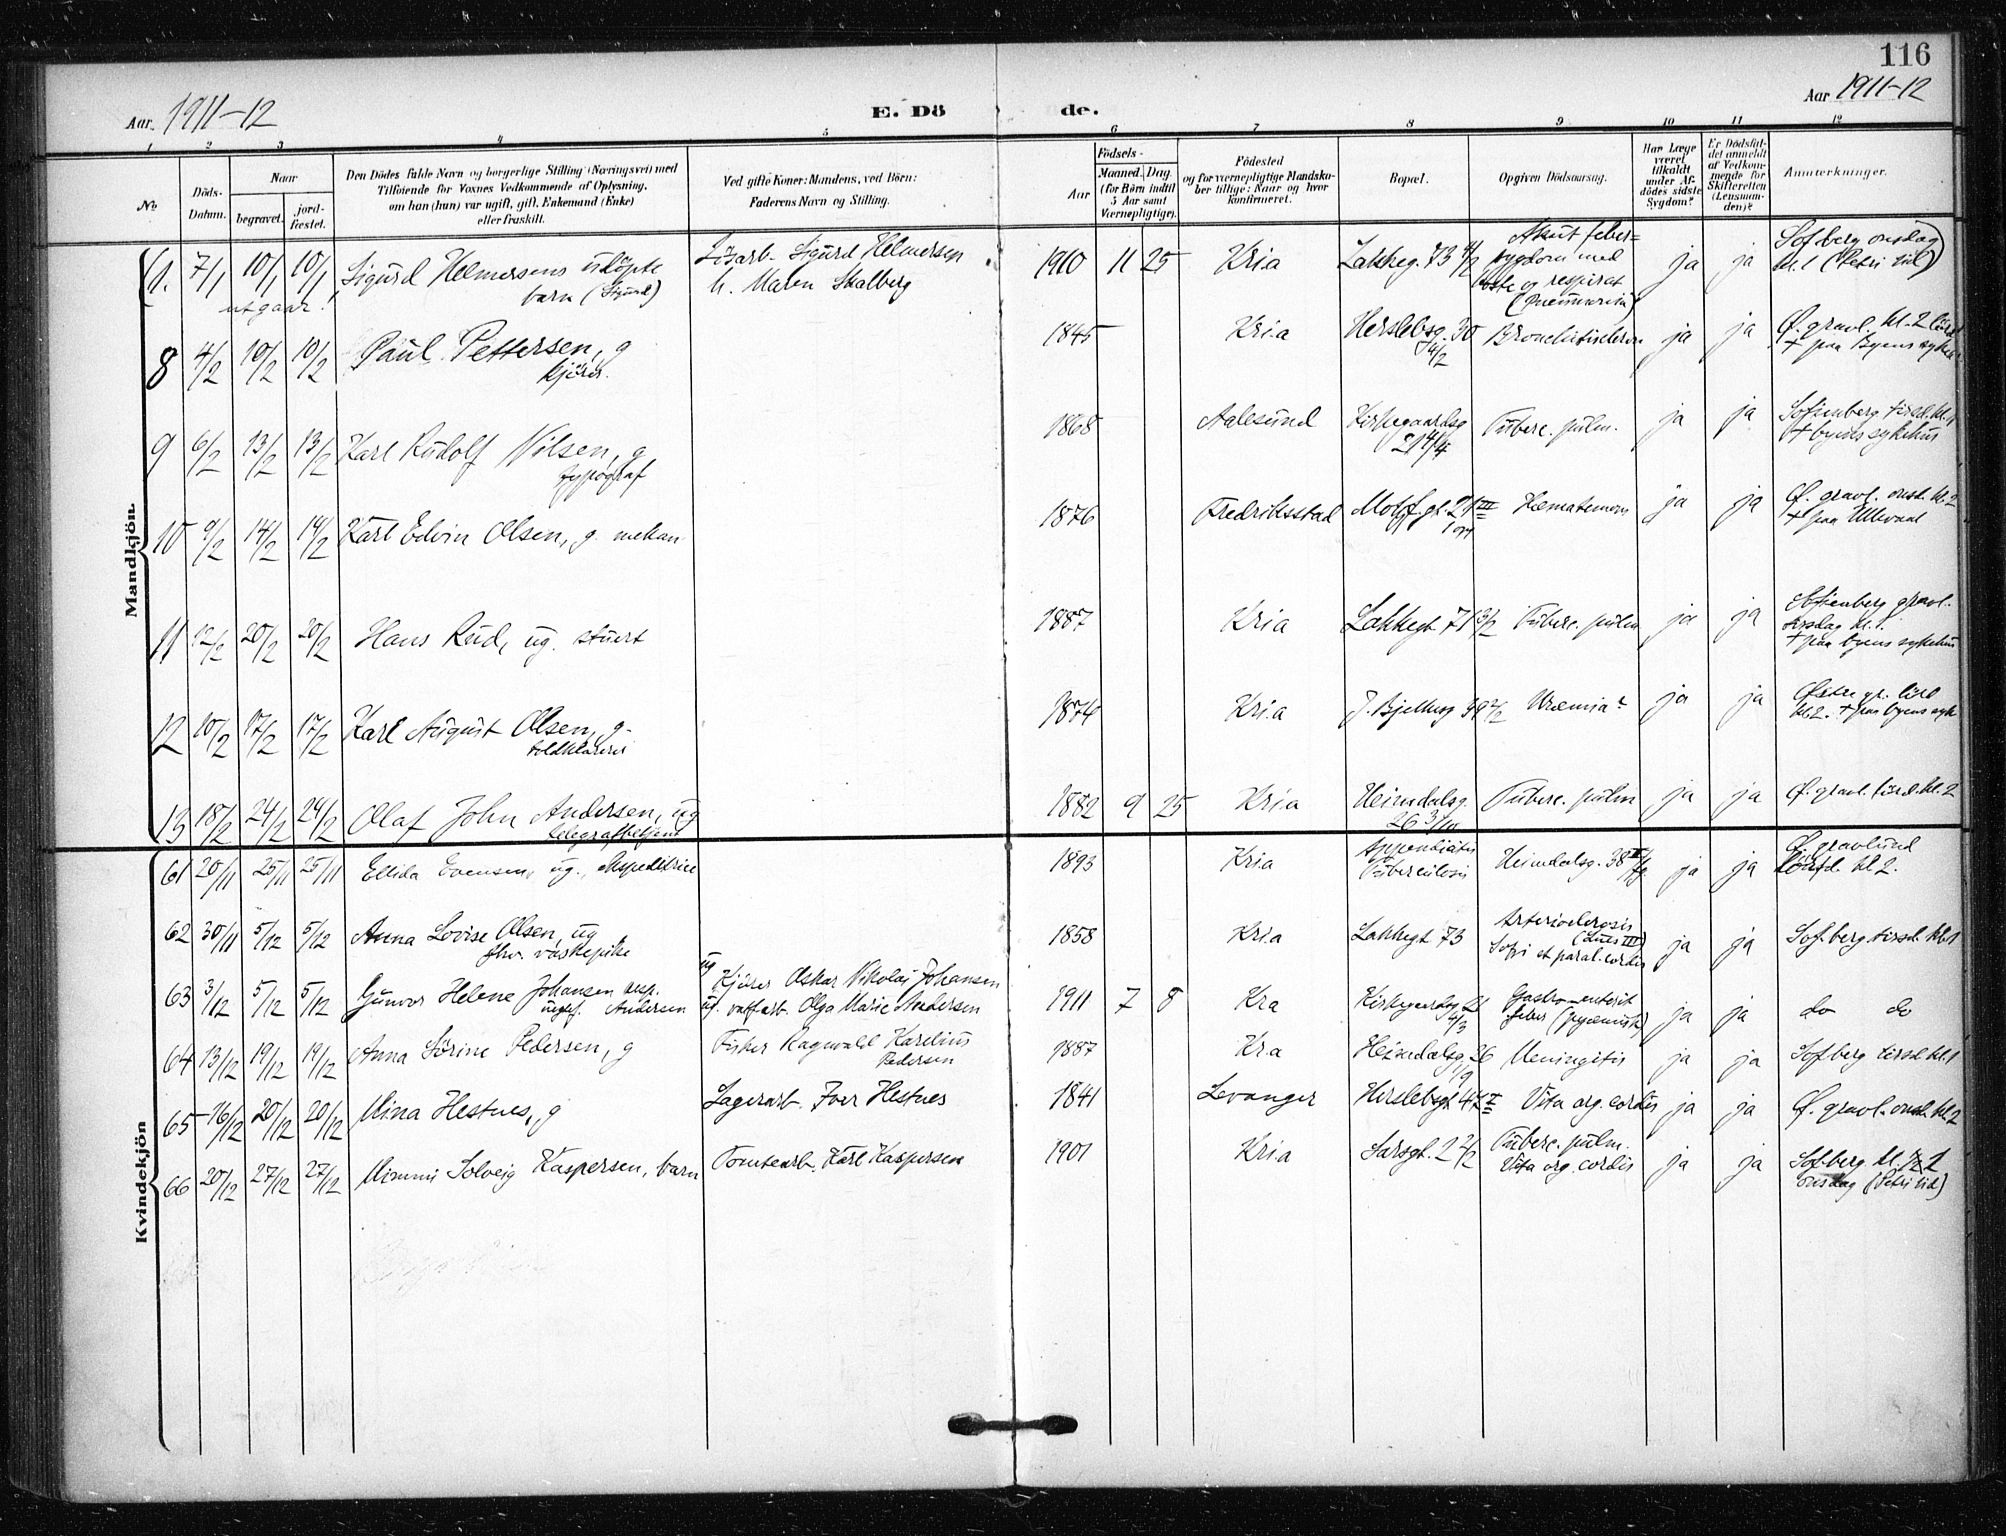 116
Aar 1911-12
E. Dö de.
Aar 1911-12
1 2 3 4 5 6 7 8 9 10 11 12
No
Döds-Datum.
Naar
begravet.
jord-fæstet.
Den Dödes fulde Navn og borgerlige Stilling (Næringsvei) med
Tilföiende for Voxnes Vedkommende af Oplysning,
om han (hun) var ugift, gift, Enkemand (Enke)
eller fraskilt.
Ved gifte Koner: Mandens, ved Börn:
Faderens Navn og Stilling.
Födsels-
Aar
Maaned. Dag.
(for Börn indtil
5 Aar samt
Værnepligtige).
Födested
og for værnepligtige Mandska-
ber tillige: Naar og hvor
konfirmeret.
Bopæl.
Opgiven Dödsaarsag.
Har Læge
været
tilkaldt
under Af-
dödes sidste
Sygdom?
Er Dödsfal-
det anmeldt
af Vedkom-
mende for
Skifteretten
(Lensman-
den)?
Anmerkninger.
Mandkjön.
1. 7/1 10/1 10/1 Sigurd Helmersens udöpte Sigurd Helmersen 1910 11 25 Kria Lakkeg. 73 4/2 Akut feber= ja ja Sofberg onsdag
utgaar! barn (Sigurd) h. Maren Skalberg sygdom med kl. 1 (Petri tid)
og respirat
8 4/2 10/2 10/2 Paul Pettersen, g 1845 Kria Herslebsg. 30 ja ja Ø. gravl. kl. 2
kjörer. 4/2 + paa Byens
9 6/2 13/2 13/2 Karl Rudolf Nilsen, g 1868 Aalesund Kirkegaardsg Tuberc. pulm. ja ja Sofienberg tirsd. kl. 1
typograf 21 4/4 + byens sykehus
10 9/2 14/2 14/2 Karl Edvin Olsen, g. mekan 1876 Fredriksstad gt. 21 III ja ja Ø. gravl. onsd. kl. 2
+ paa Ullevaal
11 12/2 20/2 20/2 Hans Rud, ug. stuert 1887 Kria Lakkegt 71 3/2 Tuberc. pulm ja ja Sofienberg gravl.
tirsdag kl. 1.
+ paa byens sykehus
12 10/2 17/2 17/2 Karl August Olsen, g. 1874 Kria J. Bjelkesg 2/2 Uræmia? ja ja Østre gr.
kl. 2. + paa byens syk
13 18/2 24/2 24/2 Olaf John Andersen, ug 1882 9 25 Kria Heimdalsg. Tuberc. pulm ja ja Ø. gravl. lörd. kl. 2
telegrafbetjent 26
Kvindekjön
61 20/11 25/11 25/11 Ellida Evensen, ug., ekspeditrice 1893 Kria Appendicitis Heimdalsg. 38 ja ja Ø gravlund
Tuberculosis lörd. kl 2.
62 30/11 5/12 5/12 Anna Lovise Olsen, ug 1858 Kria Lakkegt 73 (Lues III) ja ja Sofberg tirsd. kl. 1
fhv. vaskepike et paral. cordis
63 3/12 5/12 5/12 Gunvor Helene Johansen resp. ug Kjörer Oskar Nikolaj Johansen 1911 7 8 Kra Kirkegaardsg 21 Gastro-enterit ja ja do do
Andersen ug. Olga Marie Andersen 4/3 feber (pyæmisk)
64 13/12 19/12 19/12 Anna Sörine Pedersen, g Fisker Ragnvald Karelius 1887 Kra Heimdalsg. 26 Meningitis ja ja Sofberg tirsd kl. 1
Pedersen
65 16/12 20/12 20/12 Mina Hestnes, g Lagerarb. Iver Hestnes 1841 Levanger Herslebsgt Vita org. cordis ja ja Ø. gravl. onsd. kl. 2
66 20/12 27/12 27/12 Mimmi Solveig Kaspersen, barn Tomtearb. Karl Kaspersen 1901 Kria Sarsgt. 2 2/2 Tuberc. pulm. ja ja Sofberg kl. 1
Vita org. cordis onsdag (Petri tid)